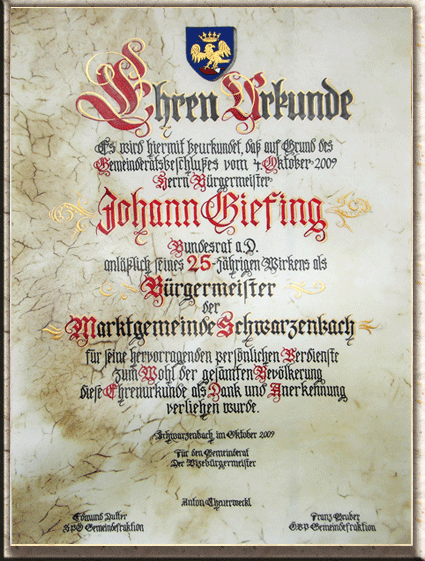 Ehren Urkunde
Es wird hiermit beurkundet, daß auf Grund des
Gemeinderatsbeschlußes vom 4. Oktober 2009
Herrn Bürgermeister
Johann Giefing
Bundesrat a.D.
anläßlich seines 25-jährigen Wirkens als
Bürgermeister
der
Marktgemeinde Schwarzenbach
für seine hervorragenden persönlichen Verdienste
zum Wohl der gesamten Bevölkerung
diese Ehrenurkunde als Dank und Anerkennung
verliehen wurde.
Schwarzenbach im Oktober 2009
Für den Gemeinderat
Der Vizebürgermeister
Anton
Edmund Franz Gruber
SPÖ Gemeindefraktion ÖVP Gemeindefraktion